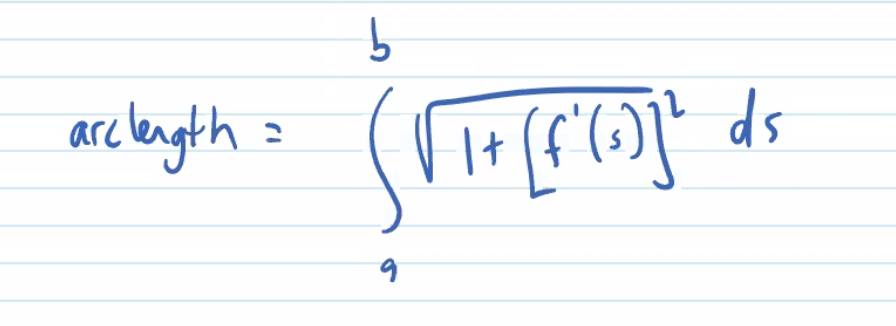 arc length = ∫_a^b √(1 + [f'(s)]²) ds